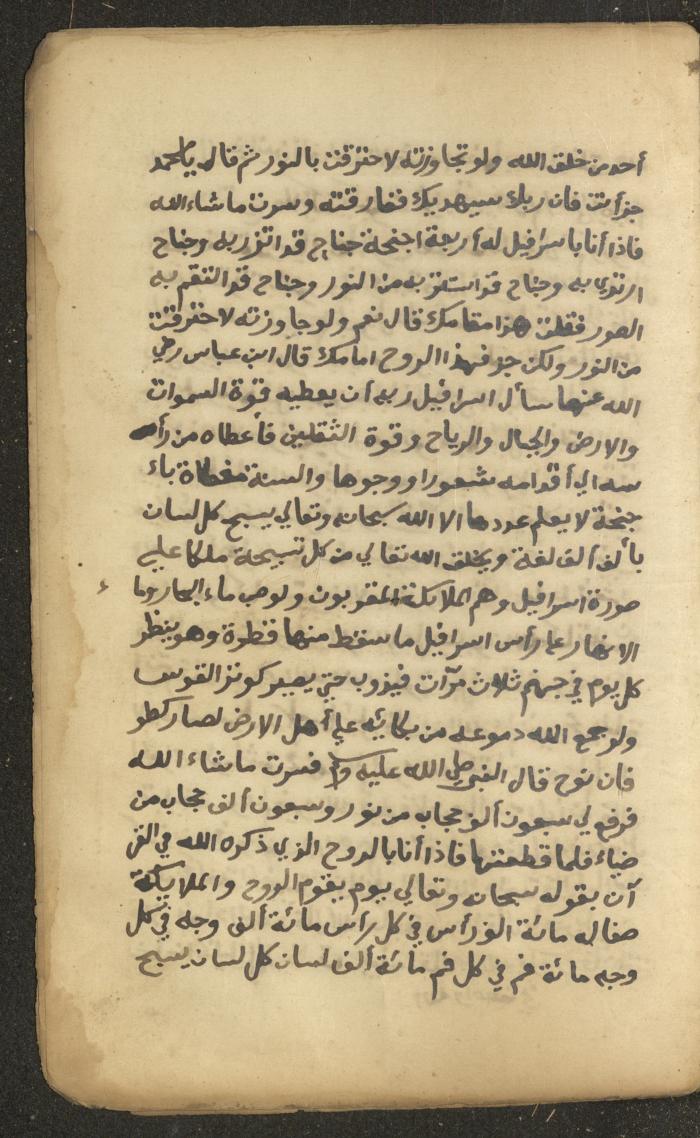 أحد من خلق الله ولو تجاوزته لاحترقت بالنور ثم قال يا محمد
جز أنت فان ربك سيهديك ففارقته وسرت ماشاء الله
فاذا أنا باسرافيل له أربعة اجنحة جناح قد اتزر به وجناح
ارتدى به وجناح قد استتر به من النور وجناح قد التقم به
الصور فقلت هذا مقامك قال نعم ولو جاوزته لاحترقت
من النور ولكن جز فهذا الروح امامك قال ابن عباس رضي
الله عنهما سأل اسرافيل ربه أن يعطيه قوة السموات
والارض والجبال والرياح وقوة الثقلين فأعطاه من رأ
سه الي أقدامه شعورا ووجوها والسنة مغطاة بأ
جنحة لا يعلم عددها الا الله سبحانه وتعالي يسبح كل لسان
بألف ألف لغة ويخلق الله تعالي من كل تسبيحة ملكا علي
صورة اسرافيل وهم الملائكة المقربون ولو صب ماء البحار وماء
الانهار علي رأس اسرافيل ما سقط منها قطرة وهو ينظر
كل يوم في جهنم ثلاث مرآت فيذوب حتي يصير كوتر القوس
ولو جمع الله دموعه من بكائه علي أهل الارض لصار كطو
فان نوح قال النبي صلي الله عليه وسلم فسرت ماشاء الله
فرفع لي سبعون ألف حجاب من نور وسبعون ألف حجاب من
ضياء فلما قطعتها فاذا أنا بالروح الذي ذكره الله في القر
آن بقوله سبحانه وتعالي يوم يقوم الروح والملايكة
صفا له مائة الف رأس في كل رأس مائة ألف وجه في كل
وجه مائة فم في كل فم مائة ألف لسان كل لسان يسبح